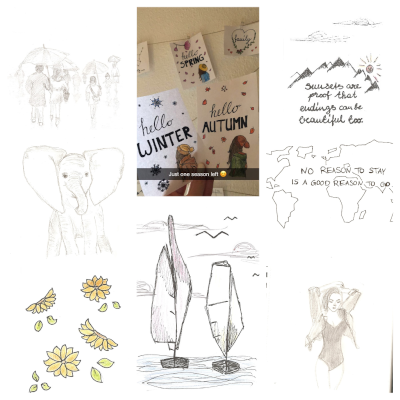 hello
SPRING
family
hello
WINTER
hello
AUTUMN
Just one season left
sunsets are
proof that
endings can be
beautiful too.
NO REASON TO STAY
IS A GOOD REASON TO GO